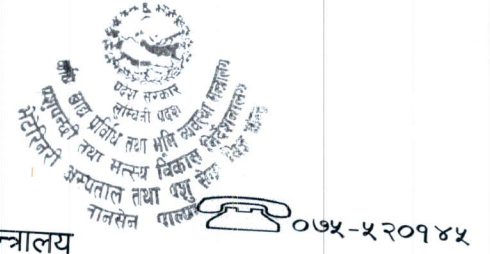 प्रदेश सरकार
लुम्बिनी प्रदेश
खाद्य प्रविधि तथा भूमि व्यवस्था मन्त्रालय
पशुपन्छी तथा मत्स्य विकास निर्देशनालय
भेटेरिनरी अस्पताल तथा पशु सेवा
तानसेन पाल्पा
०७५-५२०१४५
न्त्रालय